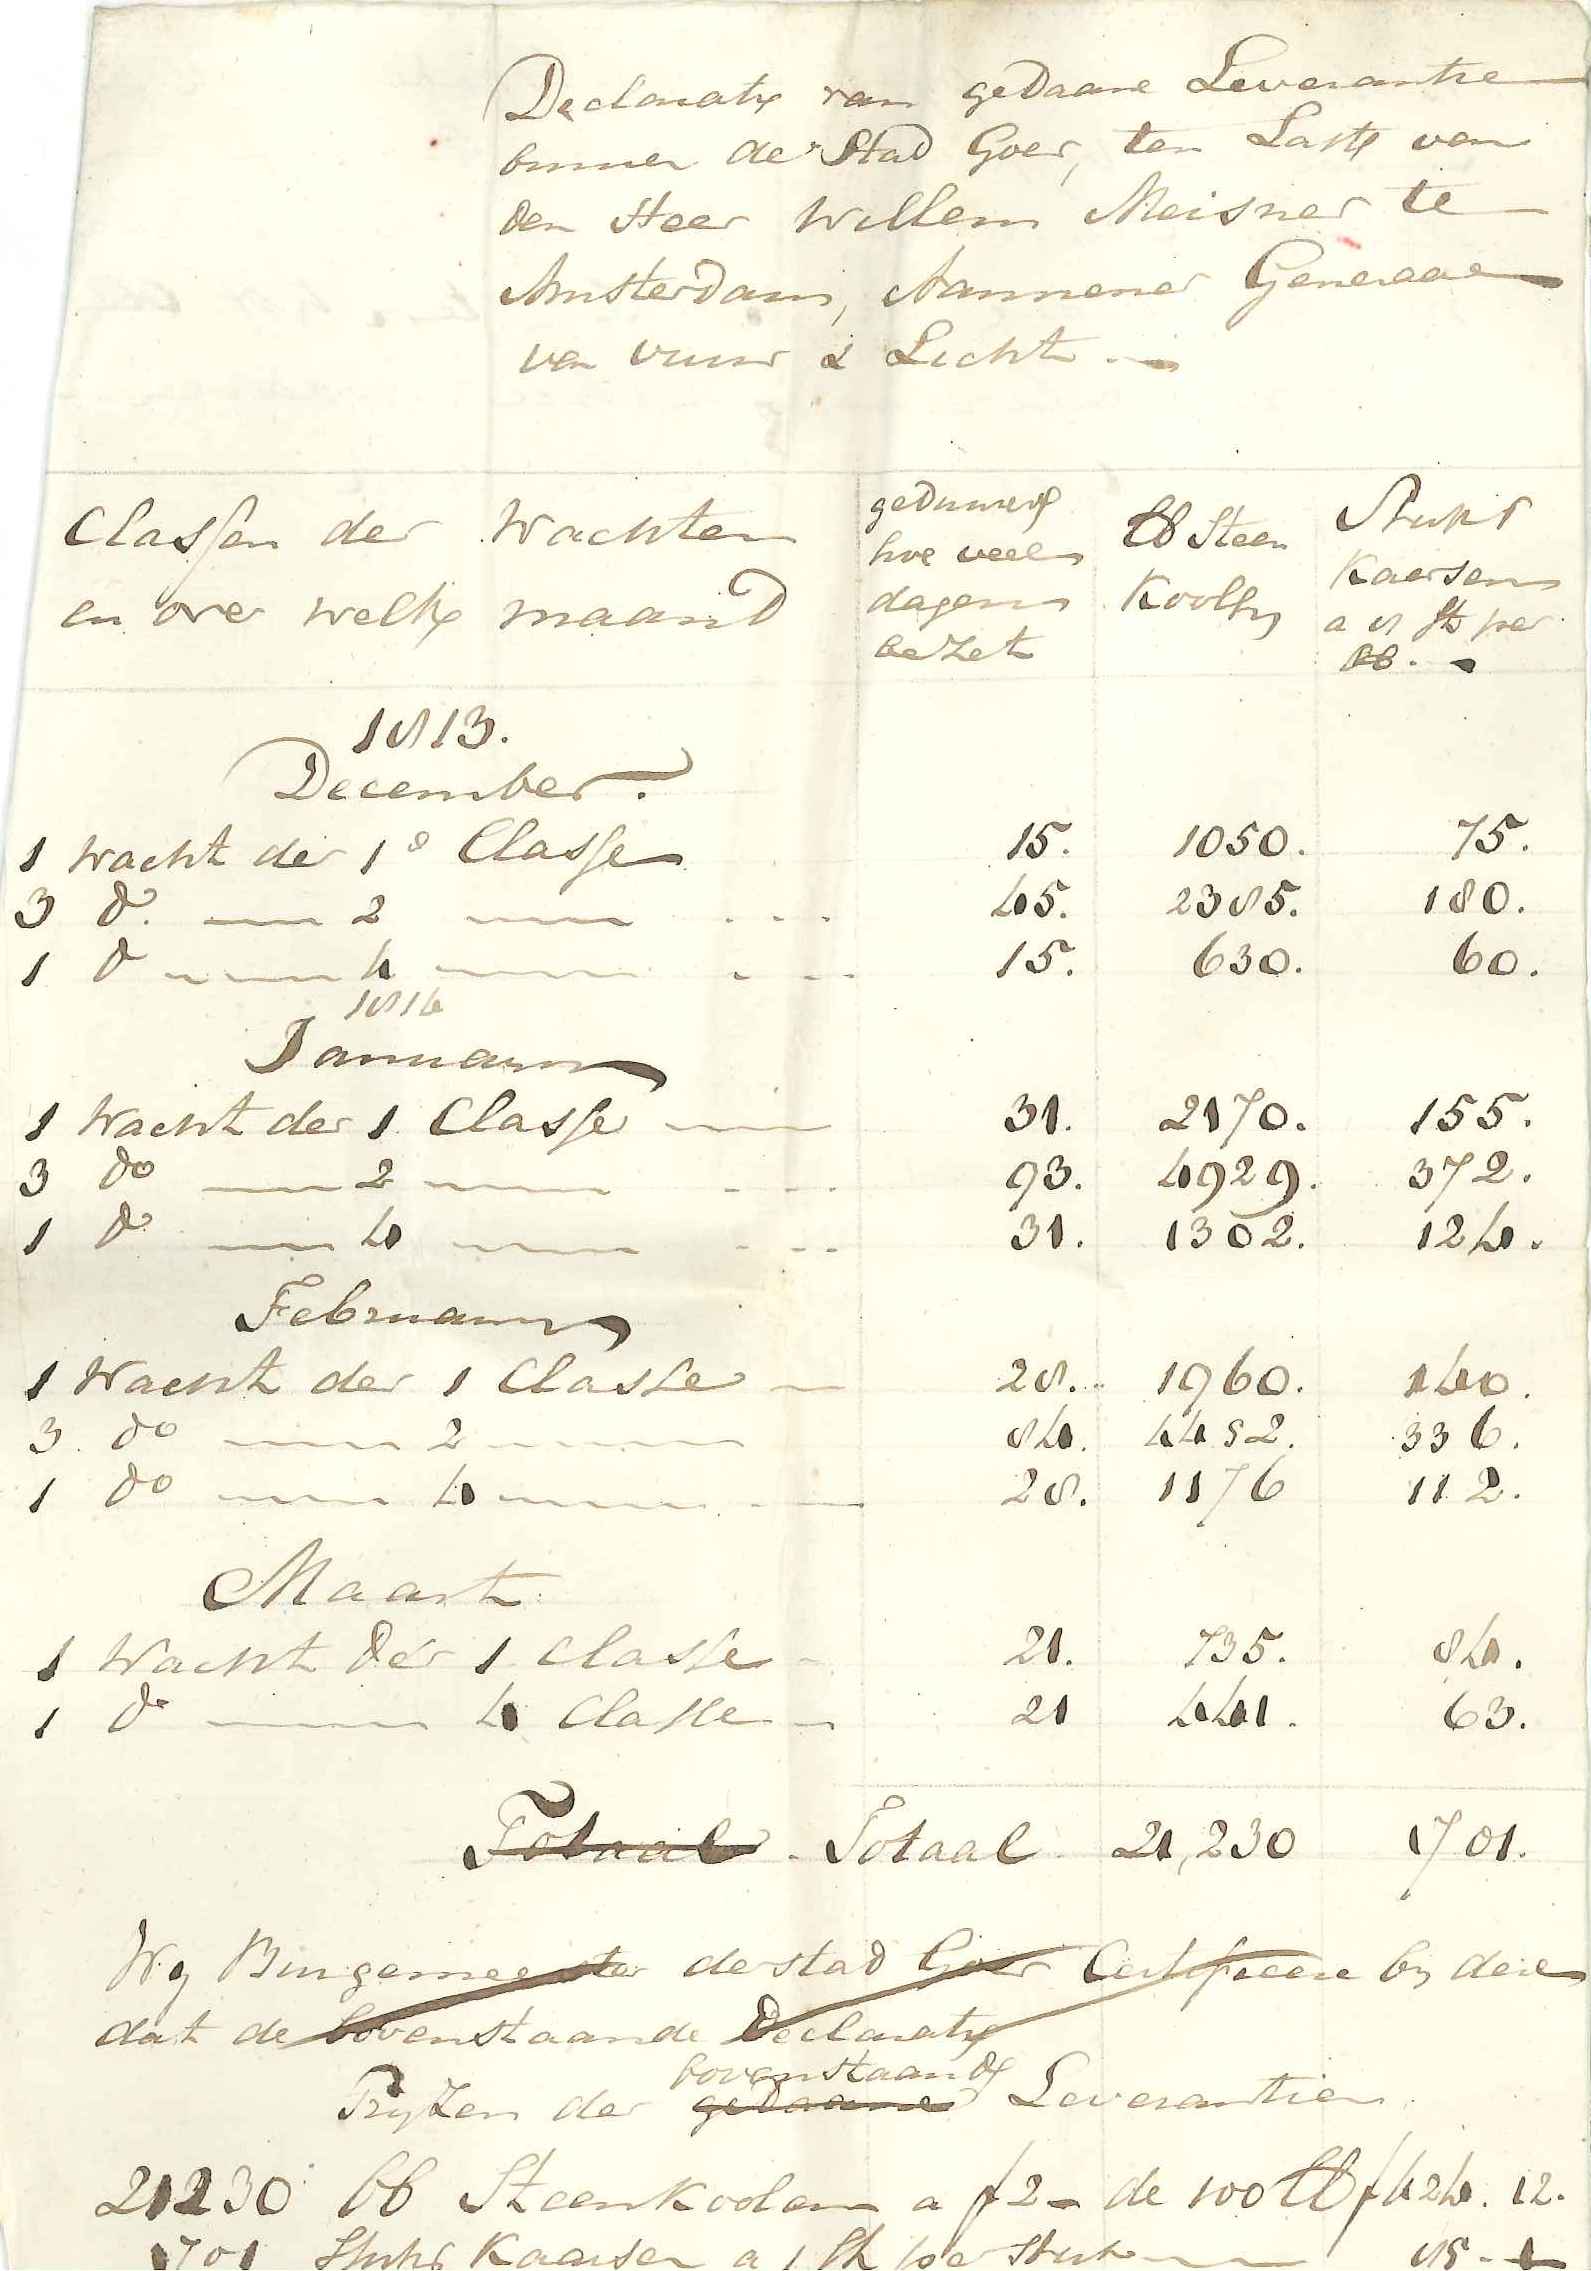 Declaratie van gedaane Leverantie
binnen de Stad Goor, ten Laste van
den Heer Willem Meisner te
Amsterdam, Aannemer Generaal
van vuur & Licht.
Classen der Wachten
en over welke maand
gedurende
hoe veel
dagen
bezet
lb Steen
Koolen
Stuks
Kaersen
a 8 st per
lb.
1813.
December.
1 Wacht der 1e Classe 15. 1050. 75.
3 do. 2 45. 2385. 180.
1 do 4 15. 630. 60.
1814
Januarij
1 Wacht der 1 Classe 31. 2170. 155.
3 do 2 93. 4929. 372.
1 do 4 31. 1302. 124.
Februarij
1 Wacht der 1 Classe 28. 1960. 140.
3 do 2 84. 4452. 336.
1 do 4 28. 1176 112.
Maart
1 Wacht der 1 Classe 21. 735. 84.
1 do 4 Classe 21 441. 63.
Totaal Totaal 21,230 1701.
Wij Burgemeester der stad Goor Certificeere bij deze
dat de bovenstaande Declaratie
bovenstaande
Pryzen der gedaane Leverantien
21230 lb Steenkoolen a f 2 - de 100 lb f 424. 12.
1701 Stuks Kaarsen a 1 St per Stuk 85 - 1